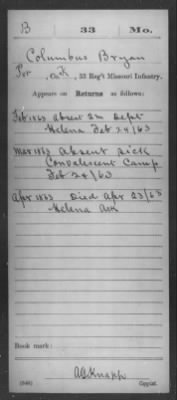 B 33 Mo.
Columbus Bryan
Pvt, Co. K, 33 Reg't Missouri Infantry.
Appears on Returns as follows:
Feb 1863 absent in Dept
Helena Feb 24/63
Mar 1863 absent sick
Convalescent Camp
Feb 24/63
Apr 1863 Died Apr 23/63
Helena Ark
Book mark:
(546)
Copyist.